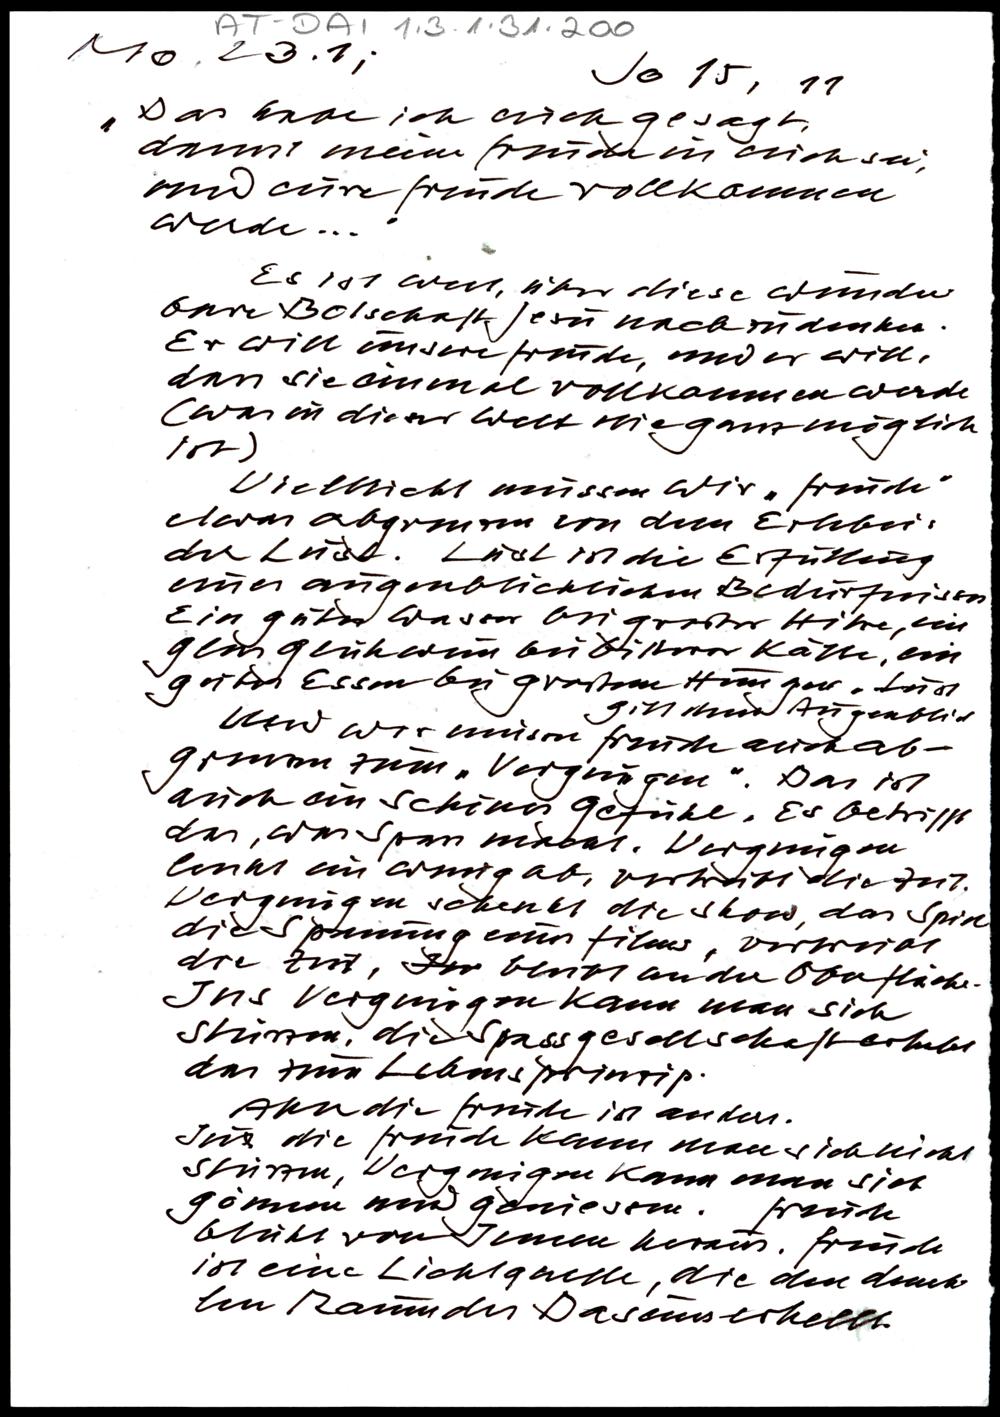 AT-DAI 1.3.1.31.200
Mo. 23.1;
Jo 15, 11
„Das habe ich euch gesagt,
damit meine Freude in euch sei,
und eure Freude vollkommen
werde..."
Es ist wert, über diese wunder
bare Botschaft Jesu nachzudenken.
Er will unsere Freude, und er will,
dass sie einmal vollkommen werde
(was in dieser Welt nie ganz möglich
ist)
Vielleicht müssen wir „Freude"
etwas abgrenzen von dem Erlebnis
der Lust. Lust ist die Erfüllung
eines augenblicklichen Bedürfnisses
Ein gutes Wasser bei grosser Hitze, ein
Glas Glühwein bei bitterer Kälte, ein
gutes Essen bei grossem Hunger. Lust
gilt dem Augenblick
Und wir müssen Freude auch ab-
grenzen zum „Vergnügen". Das ist
auch ein schönes Gefühl. Es betrifft
das, was Spass macht. Vergnügen
lenkt ein wenig ab, vertreibt die Zeit.
Vergnügen schenkt die Show, das Spiel
die Spannung eines Films, vertreibt
die Zeit, bleibt an der Oberfläche.
Ins Vergnügen kann man sich
stürzen, die Spassgesellschaft erhebt
das zum Lebensprinzip.
Aber die Freude ist anders.
Ins die Freude kann man sich nicht
stürzen, Vergnügen kann man sich
gönnen und geniessen. Freude
blüht von Innen heraus. Freude
ist eine Lichtquelle, die den dunk
len Raum des Daseins erhellt